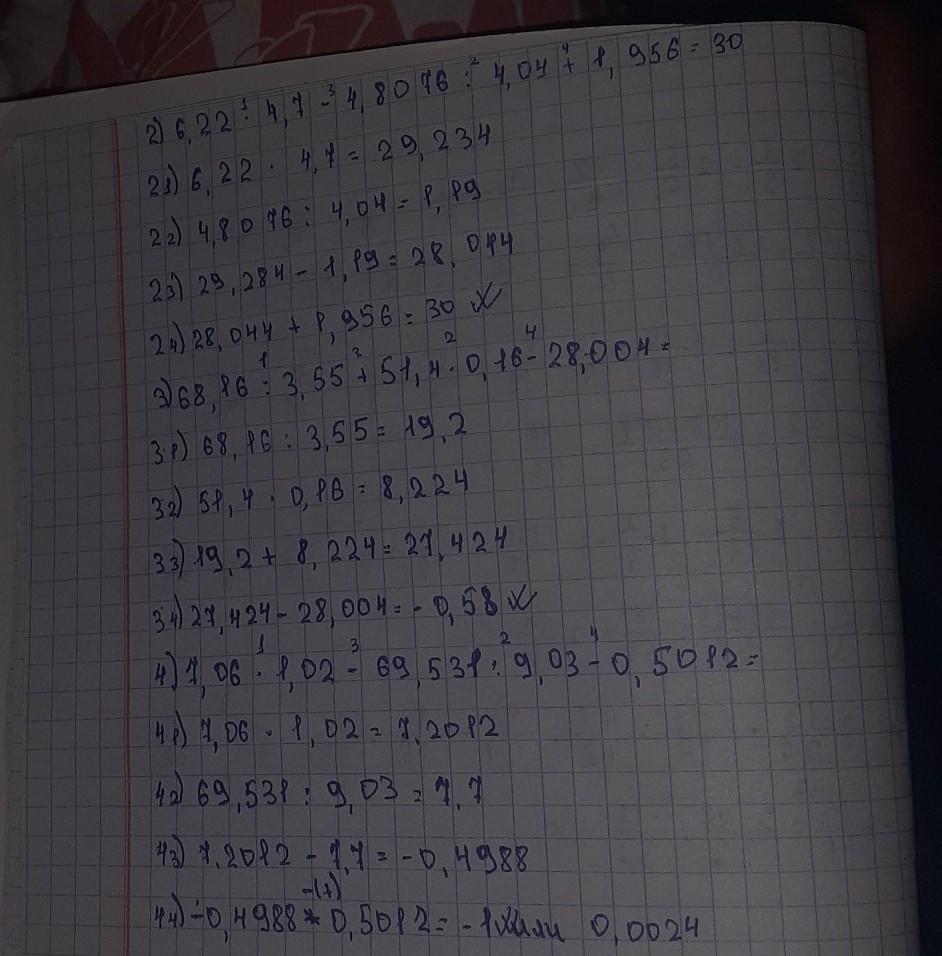 2) 6,22 · 4,7 - 4,8076 : 4,04 + 1,956 = 30
21) 6,22 · 4,7 = 29,234
22) 4,8076 : 4,04 = 1,19
23) 29,284 - 1,19 = 28,044
24) 28,044 + 1,956 = 30
3) 68,16 : 3,55 + 51,4 · 0,16 - 28,004 =
31) 68,16 : 3,55 = 19,2
32) 51,4 · 0,16 = 8,224
33) 19,2 + 8,224 = 27,424
34) 27,424 - 28,004 = - 0,58
4) 7,06 · 1,02 - 69,531 : 9,03 - 0,5012 =
41) 7,06 · 1,02 = 7,2012
42) 69,531 : 9,03 = 7,7
43) 7,2012 - 7,7 = - 0,4988
44) - 0,4988 -(+) 0,5012 = - 1 или 0,0024